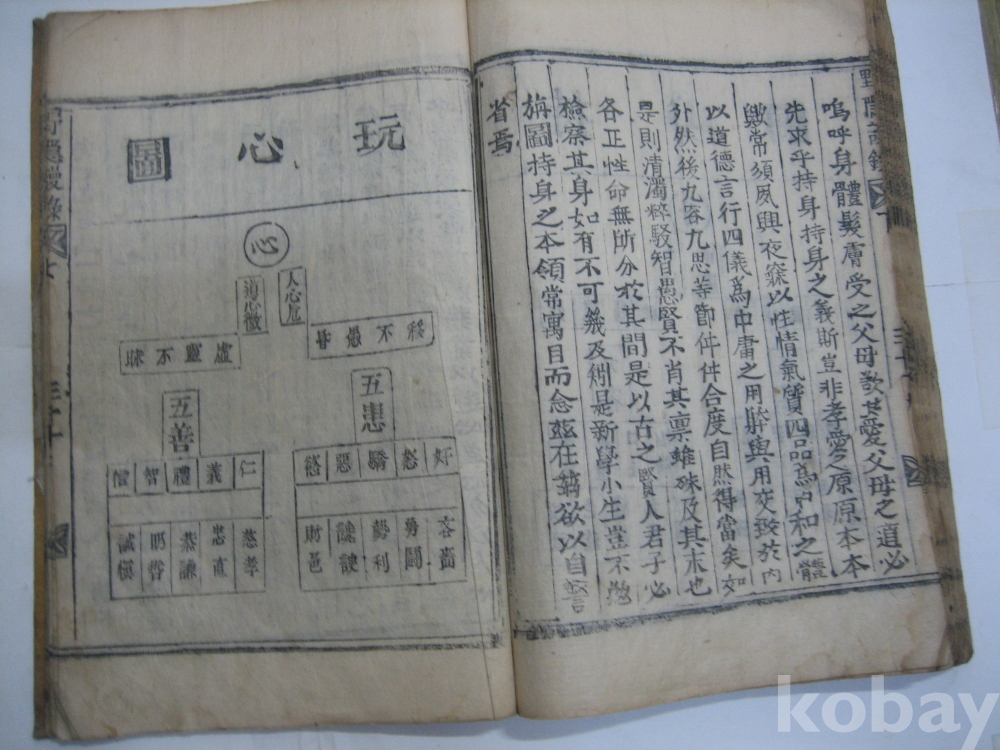 嗚呼身體髮膚受之父母敎其愛父母之道必
先求乎持身持身之義斯豈非孝愛之原原本本
歟常須夙興夜寐以性情氣質四品爲中和之體
以道德言行四儀爲中庸之用體與用交致於內
外然後九容九思等節件件合度自然得當矣如
是則淸濁粹駁智愚賢不肖其禀雖殊及其末也
各正性命無所分於其間是以古之賢人君子必
檢察其身如有不可幾及矧是新學小生豈不勉
旃圖持身之本領常寓目而念玆在玆欲以自警
省焉
玩心圖
心
人心危
道心微
不愚不移
虛靈不昧
五患
好 慾 驕 惡 慾
勇鬪 勢利 財色
五善
仁 義 禮 智 信
慈孝 忠直 恭謙 明哲 誠愼
kobay